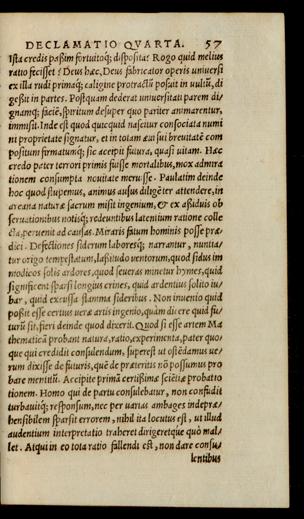 DECLAMATIO QVARTA. 57
Ista credis paßim fortuitoq; disposita? Rogo quid melius
ratio fecisset? Deus hæc, Deus fabricator operis vniuersi
ex illa rudi primaq; caligine protractũ posuit in vultũ, di
geßit in partes. Postquam dederat vniuersitati parem di-
gnamq; faciē, spiritum desuper quo pariter animarentur,
immisit. Inde est quod quicquid nascitur consociata numi
ni proprietate signatur, et in totam æui sui breuitatē com
positum firmatumq; sic accipit futura, quasi vitam. Hæc
credo pater terrori primis fuisse mortalibus, mox admira
tionem consumpta nouitate meruisse. Paulatim deinde
hoc quod stupemus, animus ausus diligēter attendere, in
arcana naturæ sacrum misit ingenium, & ex aßiduis ob
seruationibus notisq; redeuntibus latentium ratione colle
cta, peruenit ad causas. Miraris fatum hominis posse præ
dici? Defectiones siderum laboresq; narrantur, nuntia-
tur origo tempestatum, laßitudo ventorum, quod sidus im
modicos solis ardores, quod seueras minetur hyemes, quid
significent sparsi longius crines, quid ardentius solito iu-
bar, quid excussa flamma sideribus. Non inuenio quid
poßit esse certius veræ artis ingenio, quàm dicere quid fu-
turũ sit, fieri deinde quod dixerit. Quod si esse artem Ma
thematicā probant natura, ratio, experimenta, pater quo-
que qui credidit consulendum, superest ut ostēdamus ve-
rum dixisse de futuris, quē de præteritis nō possumus pro
bare mentitũ. Accipite primā certißimæ sciētiæ probatio
tionem. Homo qui de partu consulebatur, non confudit
turbauitq; responsum, nec per varias ambages indepræ-
hensibilem sparsit errorem, nihil ita locutus est, ut illud
audentium interpretatio traheret dirigeretque quò mal-
let. Atqui in eo tota ratio fallendi est, non dare consu-
lentibus